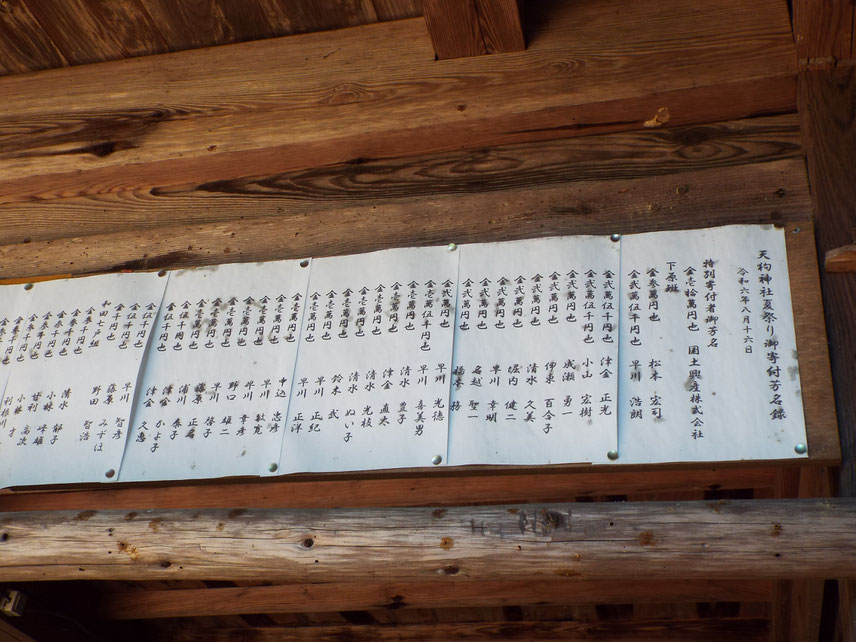 天狗神社夏祭り御寄付芳名錄
令和六年八月十六日
特別寄付者御芳名
金壱拾萬円也 国土興産株式会社
下原班
金参萬円也 松木 宏司
金弐萬伍千円也 早川 浩朗
金弐萬伍千円也 津金 正光
金弐萬円也 小山 宏樹
金弐萬円也 成瀬 勇一
金弐萬円也 伊東 百合子
金弐萬円也 清水 久美
金弐萬円也 堀内 健二
金弐萬円也 早川 幸明
金弐萬円也 名越 聖一
金弐萬円也
金弐萬円也 早川 光徳
金壱萬伍千円也 早川 喜美男
金壱萬円也 清水 豊子
金壱萬円也 津金 直太
金壱萬円也 清水 光枝
金壱萬円也 清水 ぬい子
金壱萬円也 鈴木 武
金壱萬円也 早川 正紀
金壱萬円也 早川 正洋
金壱萬円也 申込 忠彦
金壱萬円也 早川 敏寛
金壱萬円也 早川 幸彦
金壱萬円也 野口 雄二
金壱萬円也 早川 啓子
金壱萬円也 藤原 正名
金伍千円也 浦川 泰子
金伍千円也 津金 かよ子
金伍千円也 津金 久恵
金伍千円也
金伍千円也 藤原 智彦
金千円也 みすほ
和田七こ組 野田 智浩
金参千円也
金参千円也 清水 郁子
金参千円也 小林 峰雄
金参千円也 甘利 高次
金参千円也 小林